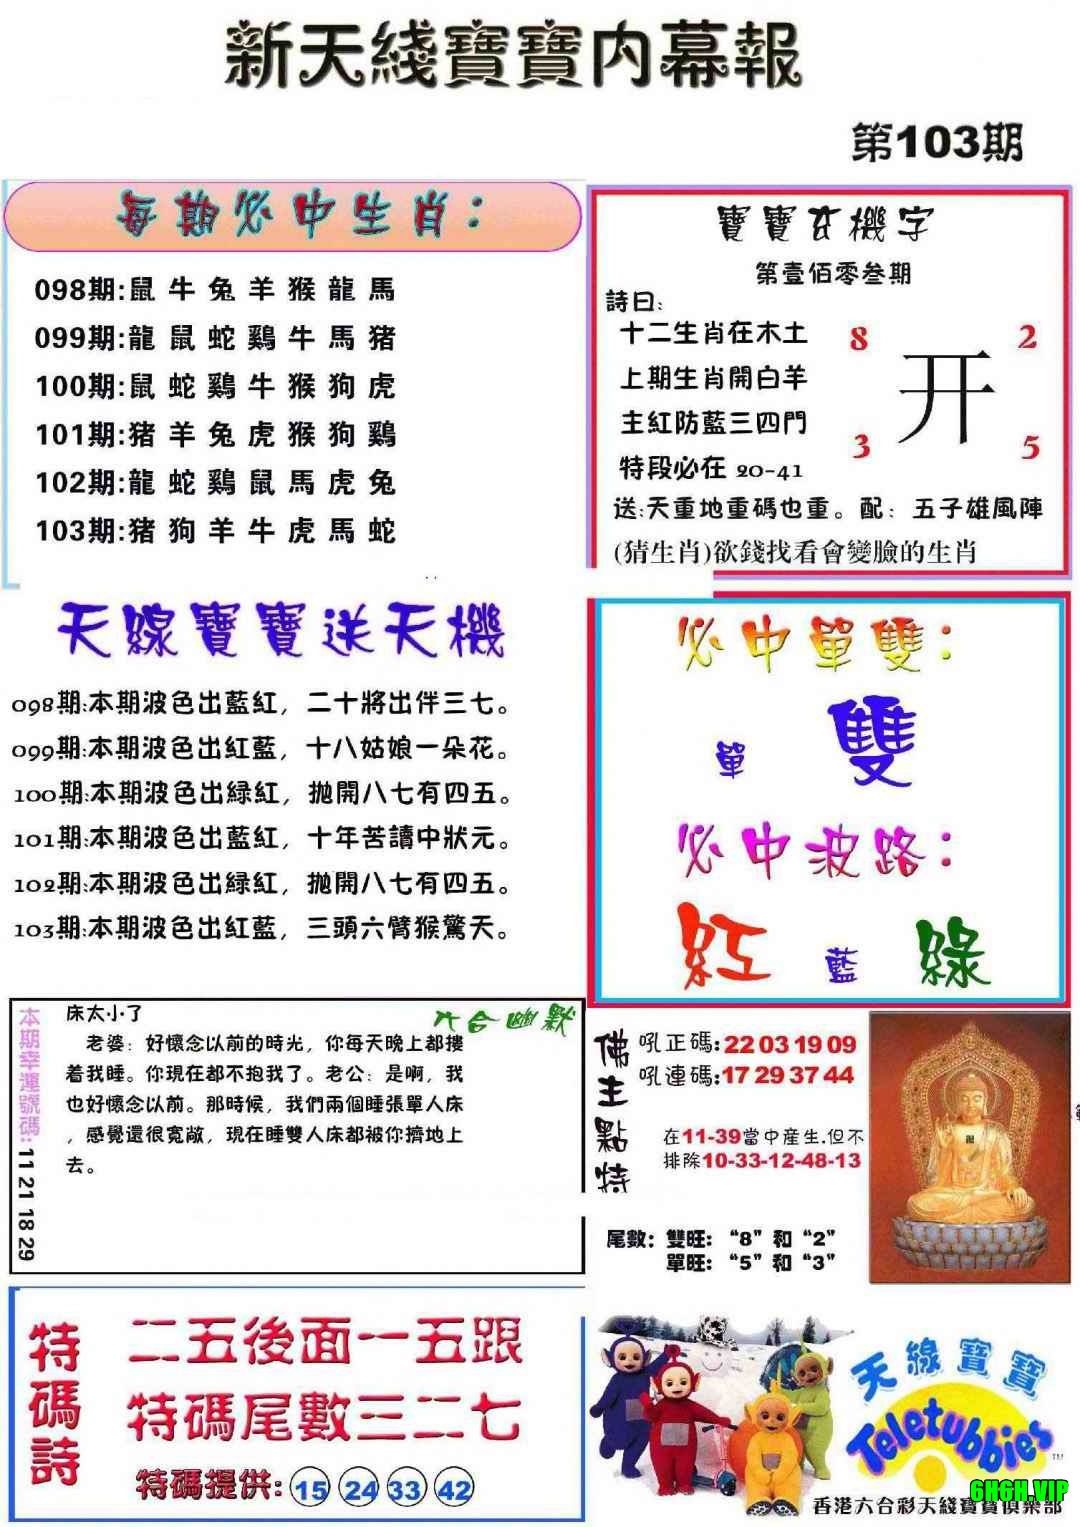 新天綫寶寶内幕報
第103期
每期必中生肖：
098期:鼠牛兔羊猴龍馬
099期:龍鼠蛇鷄牛馬猪
100期:鼠蛇鷄牛猴狗虎
101期:猪羊兔虎猴狗鷄
102期:龍蛇鷄鼠馬虎兔
103期:猪狗羊牛虎馬蛇
寶寶玄機字
第壹佰零叁期
詩曰:
十二生肖在木土
上期生肖開白羊
主紅防藍三四門
特段必在 20-41
8 2
开
3 5
送:天重地重碼也重。配：五子雄風陣
(猜生肖)欲錢找看會變臉的生肖
天線寶寶送天機
098期:本期波色出藍紅，二十將出伴三七。
099期:本期波色出紅藍，十八姑娘一朵花。
100期:本期波色出緑紅，拋開八七有四五。
101期:本期波色出藍紅，十年苦讀中狀元。
102期:本期波色出緑紅，拋開八七有四五。
103期:本期波色出紅藍，三頭六臂猴驚天。
必中單雙：
單 雙
必中波路：
紅 藍 綠
本期幸運號碼:11 21 18 29
六合幽默
床太小了
老婆：好懷念以前的時光，你每天晚上都摟
着我睡。你現在都不抱我了。老公：是啊，我
也好懷念以前。那時候，我們兩個睡張單人床
，感覺還很寬敞，現在睡雙人床都被你擠地上
去。
佛主點特
吼正碼:22 03 19 09
吼連碼:17 29 37 44
在11-39當中産生.但不
排除10-33-12-48-13
尾數：雙旺：“8”和“2”
單旺：“5”和“3”
特碼詩
二五後面一五跟
特碼尾數三二七
特碼提供: 15 24 33 42
天線寶寶
Teletubbies
TM
6H6H.VIP
香港六合彩天綫寶寶俱樂部